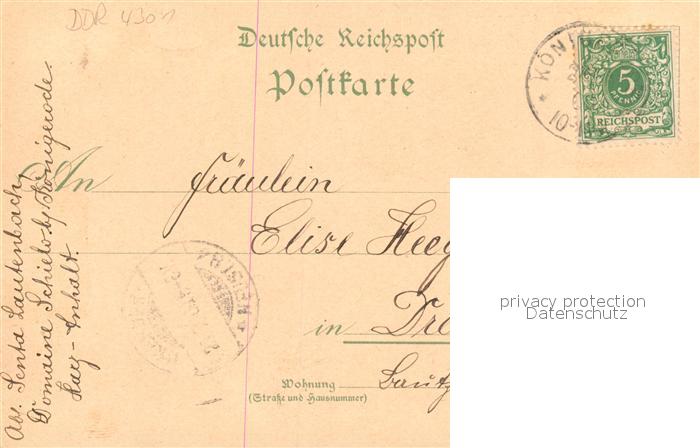 DDR 4301
Deutsche Reichspost
Postkarte
KÖNI
10-
5
PFENNIG
REICHSPOST
An
Fräulein
Elise Heeg
in Dre
Wohnung
(Straße und Hausnummer)
Bautz
Abs. Senta Lautenbach,
Domaine Schielo b/ Königerode.
Harz-Anhalt.
privacy protection
Datenschutz